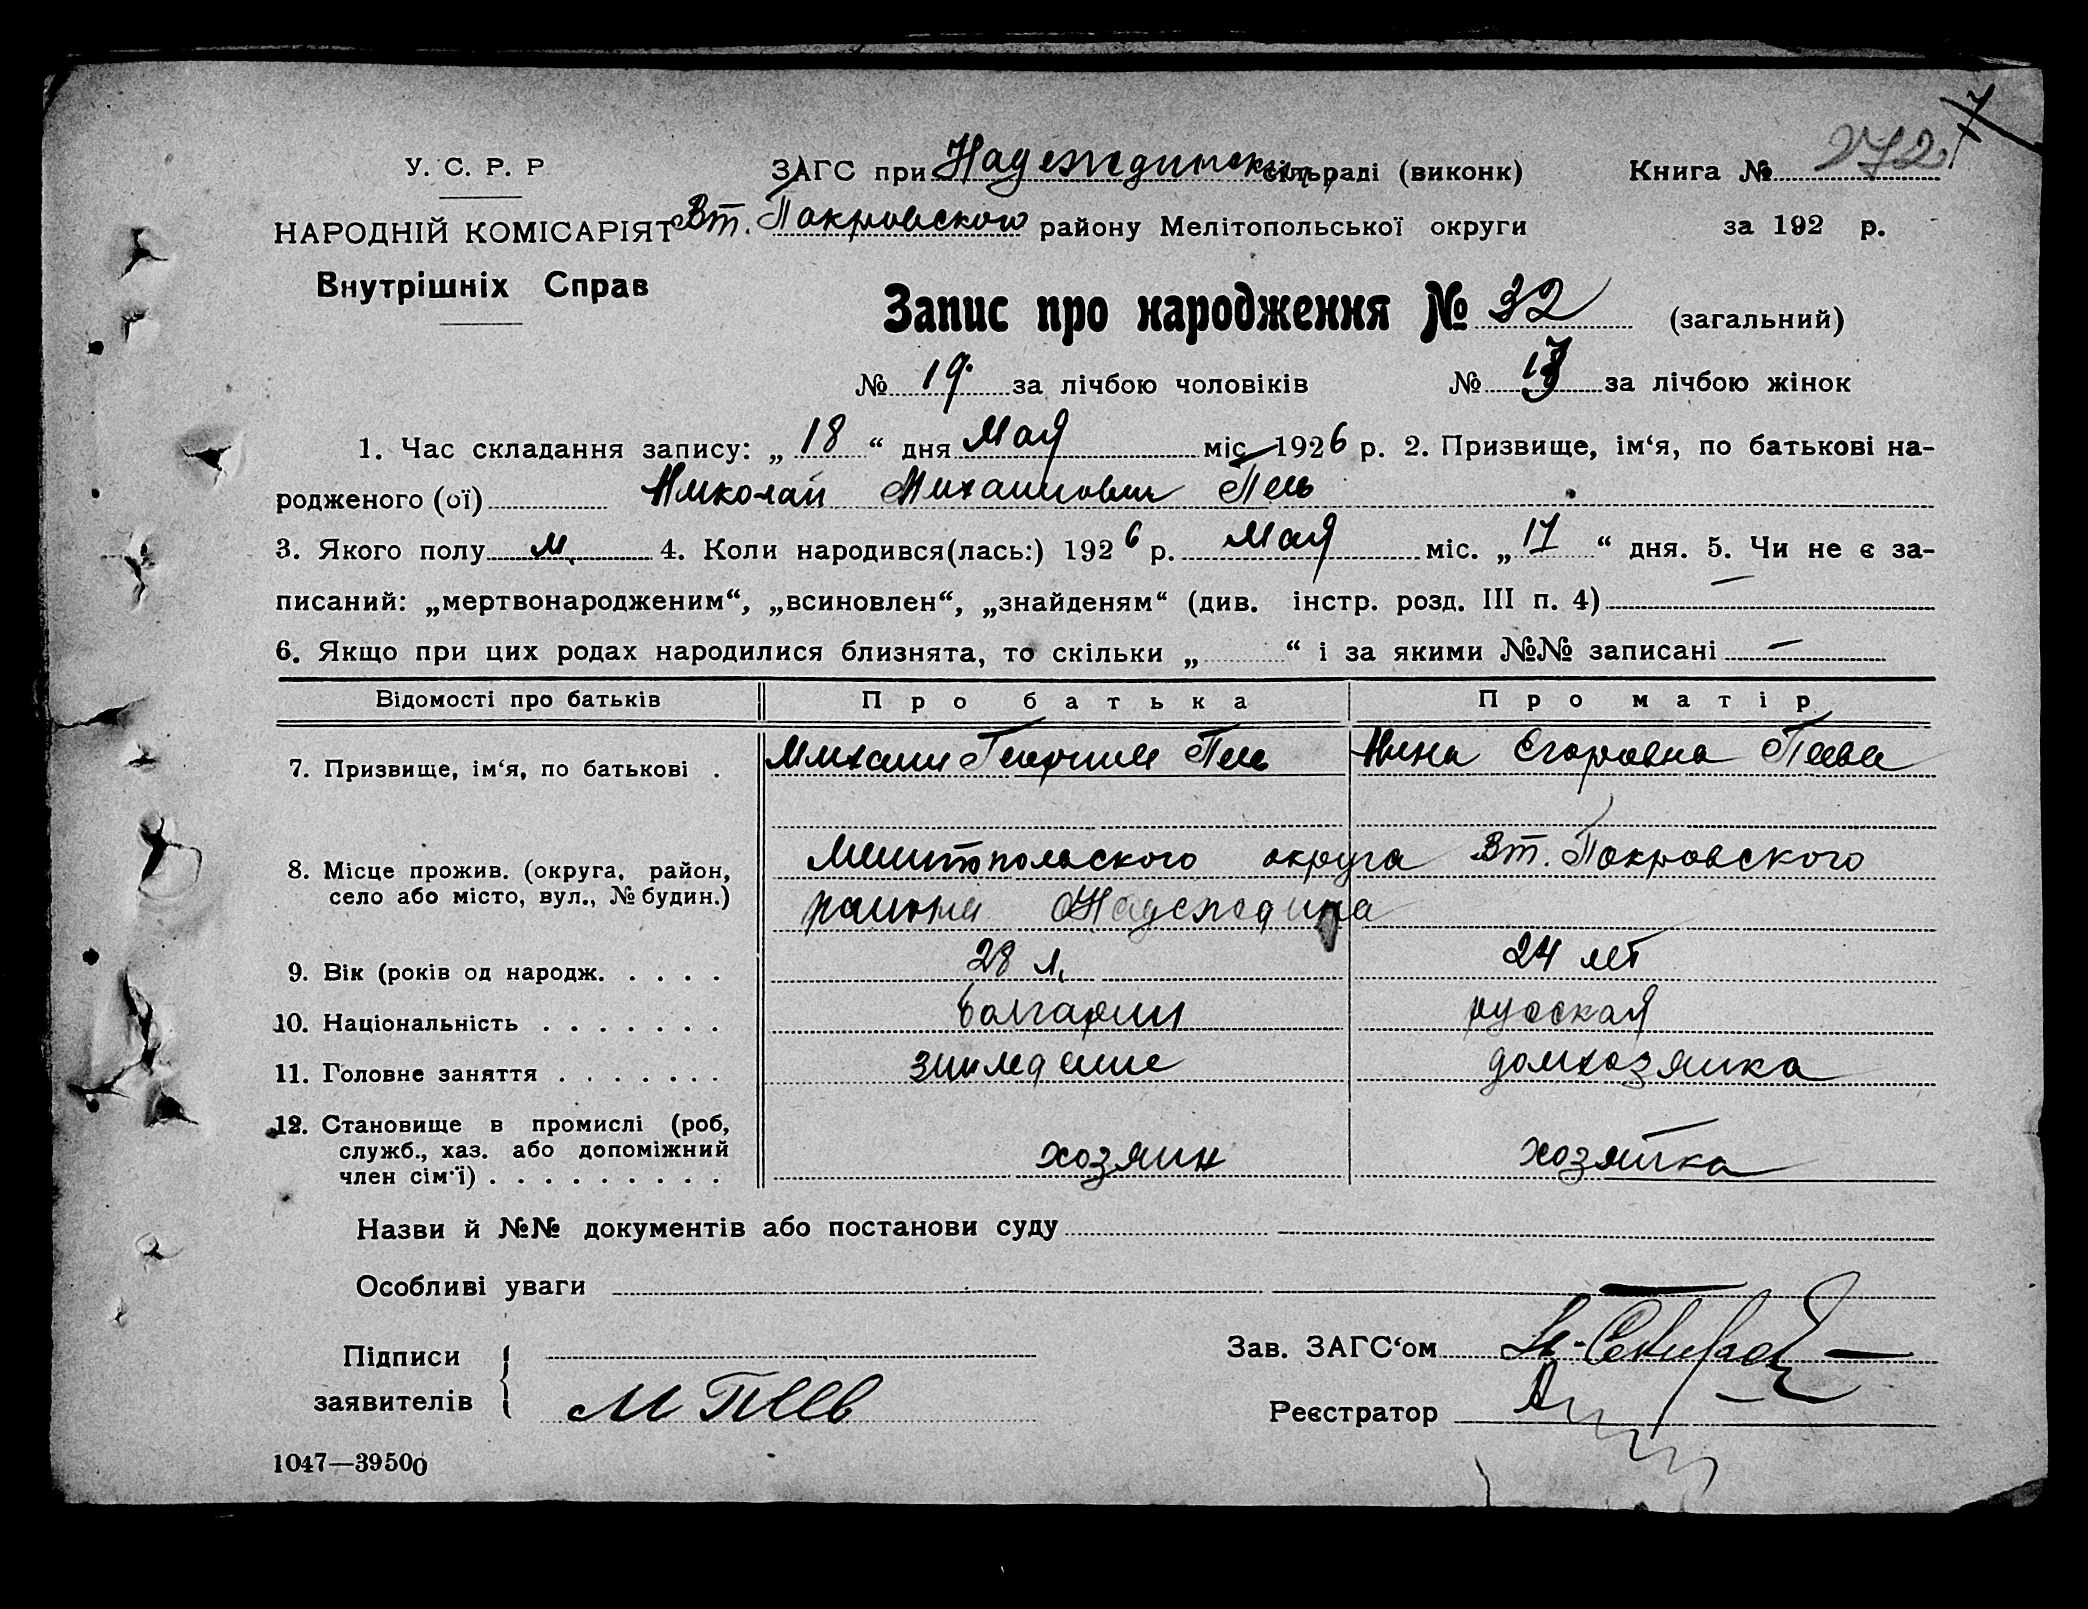 У. С. Р. Р
ЗАГС при Надеждинском сільраді (виконк)
Книга № 272
НАРОДНІЙ КОМІСАРІЯТ
Вт. Покровского району Мелітопольської округи
за 192 р.
Внутрішніх Справ
Запис про народження № 32 (загальний)
№ 19 за лічбою чоловіків № 13 за лічбою жінок
1. Час складання запису: „ 18 “ дня Мая міс 1926 р. 2. Призвище, ім‘я, по батькові на-
родженого (ої) Николай Михайлович Пеев
3. Якого полу м. 4. Коли народився(лась:) 1926 р. Мая міс. „ 17 “ дня. 5. Чи не є за-
писаний: „мертвонародженим“, „всиновлен“, „знайденям“ (див. інстр. розд. III п. 4) —
6. Якщо при цих родах народилися близнята, то скільки „ “ і за якими №№ записані —
Відомості про батьків Про батька Про матір
7. Призвище, ім‘я, по батькові . Михаил Георгиев Пеев Нина Егоровна Пеева
8. Місце прожив. (округа, район, Мелитопольского округа Вт. Покровского
село або місто, вул., № будин.) района Надеждина
9. Вік (років од народж. . . . . 28 л. 24 лет
10. Національність . . . . . . . болгарин русская
11. Головне заняття . . . . . . . земледелие домхозяйка
12. Становище в промислі (роб,
служб., хаз. або допоміжний хозяин хозяйка
член сім‘ї) . . . . . . . . .
Назви й №№ документів або постанови суду
Особливі уваги
Підписи
заявителів
М Пеев
Зав. ЗАГС‘ом
Реєстратор
1047—39500